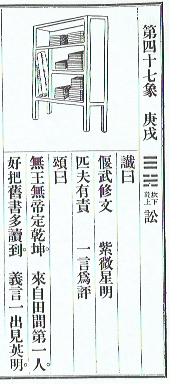 第四十七象 庚戌
坎下
乾上
訟
讖曰
偃武修文 紫微星明
匹夫有責 一言爲評
頌曰
無王無帝定乾坤。 來自田間第一人。
好把舊書多讀到。 義言一出見英明。